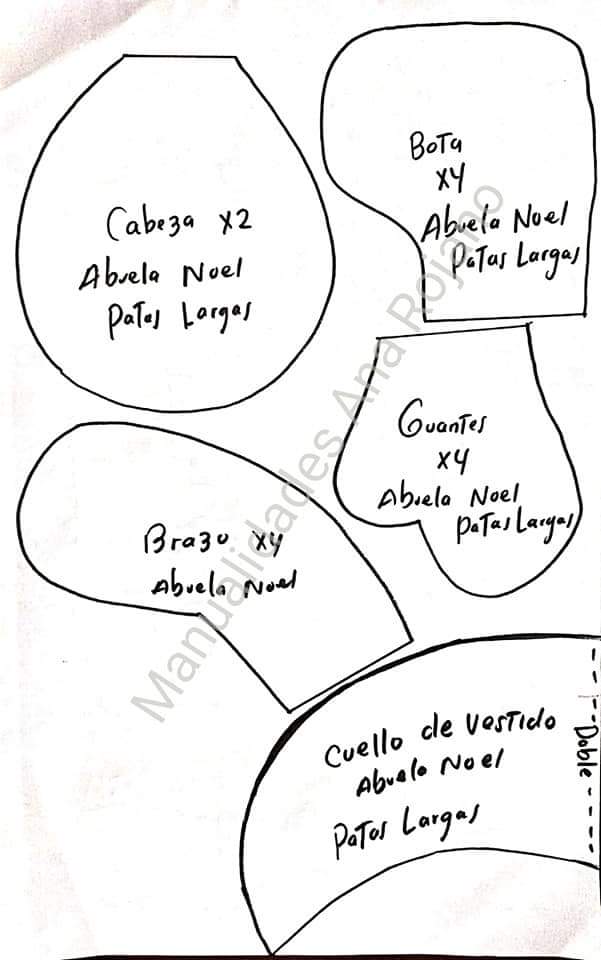 Cabeza x2
Abuela Noel
Patas Largas
Bota
x4
Abuela Noel
Patas Largas
Guantes
x4
Abuela Noel
Patas Largas
Brazo x4
Abuela Noel
Cuello de Vestido
Abuela Noel
Patas Largas
Doble
Manualidades Ana Rojano